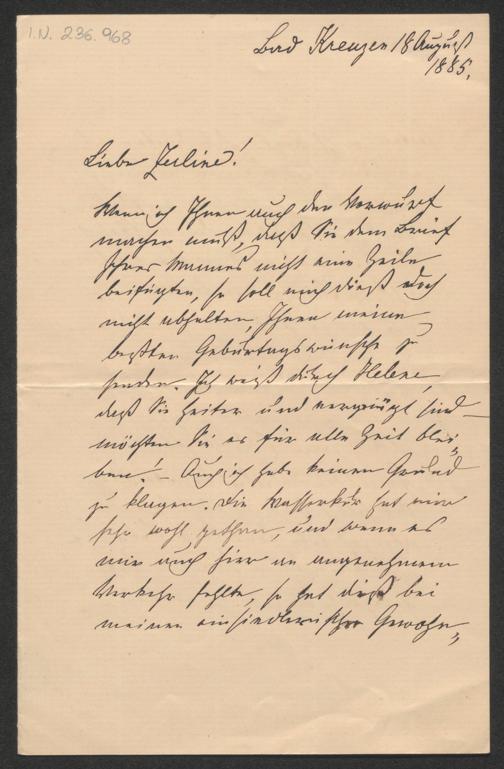 I.N. 236.968
Bad Kreuzen 18 August
1885.
Liebe Zerline!
Wenn ich Ihnen auch den Vorwurf
machen muß, daß Sie dem Brief
Ihres Mannes nicht eine Zeile
beifügten, so soll mich dieß doch
nicht abhalten, Ihnen meine
besten Geburtagswünsche zu
senden. Ich weiß durch Helene,
daß Sie heiter und vergnügt sind –
möchten Sie es für alle Zeit blei„
ben! – Auch ich habe keinen Grund
zu klagen. Die Wasserkur hat mir
sehr wohl gethan, und wenn es
mir auch hier an angenehmem
Verkehr fehlte, so hat dieß bei
meinen einsiedlerischen Gewohn„